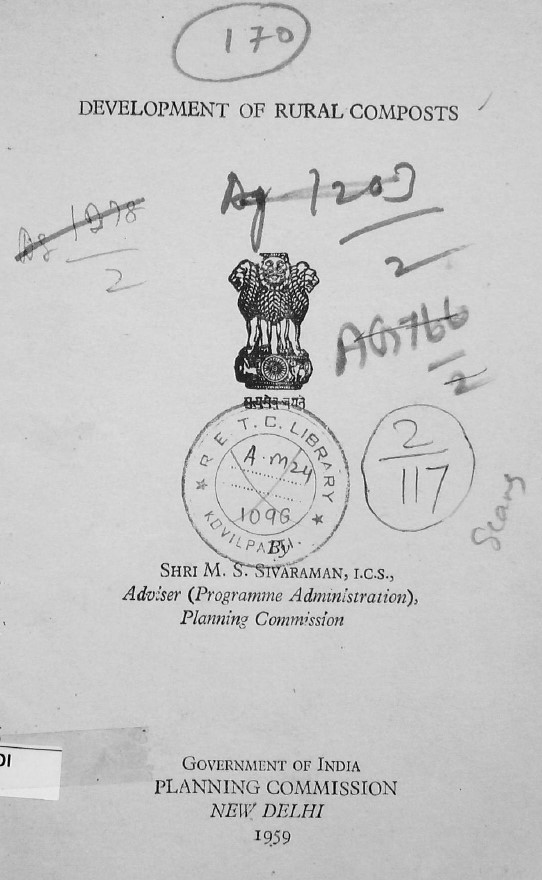 170
DEVELOPMENT OF RURAL COMPOSTS
Ag 1203
2
Ag 1278
2
AG766
2
सत्यमेव जयते
R E T. C. LIBRARY
A. M24
1096
KOVILPATTI.
2
117
By
SHRI M. S. SIVARAMAN, I.C.S.,
Adviser (Programme Administration),
Planning Commission
GOVERNMENT OF INDIA
PLANNING COMMISSION
NEW DELHI
1959